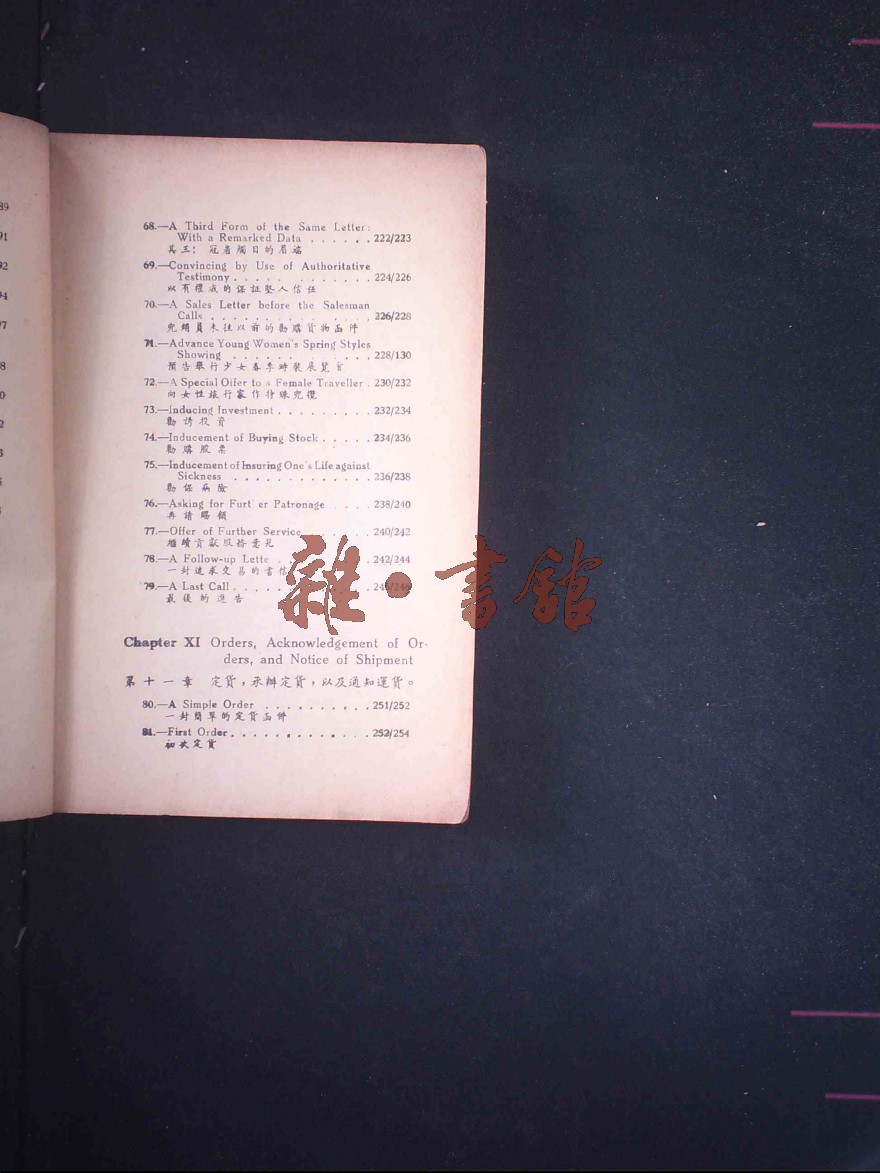 89
91
92
94
97
68.—A Third Form of the Same Letter:
With a Remarked Data . . . . . . 222/223
其三：冠着觸目的眉端
69.—Convincing by Use of Authoritative
Testimony . . . . . . . . . . . . 224/226
以有權威的保証堅人信任
70.—A Sales Letter before the Salesman
Calls . . . . . . . . . . . . . . 226/228
兜銷員未往以前的勸購貨物函件
71.—Advance Young Women's Spring Styles
Showing . . . . . . . . . . . . 228/130
預告舉行少女春季時裝展覽會
72.—A Special Offer to a Female Traveller . 230/232
向女性旅行家作特殊兜攬
73.—Inducing Investment . . . . . . . . 232/234
勸誘投資
74.—Inducement of Buying Stock . . . . . 234/236
勸購股票
75.—Inducement of Insuring One's Life against
Sickness . . . . . . . . . . . . 236/238
勸保病險
76.—Asking for Furt er Patronage . . . . 238/240
再請賜顧
77.—Offer of Further Service . . . . . . 240/242
繼續貢獻服務意見
78.—A Follow-up Lette . . . . . . . . 242/244
一封追求交易的書信
79.—A Last Call . . . . . . . . . . . 245/246
最後的進告
雜·書館
Chapter XI Orders, Acknowledgement of Or-
ders, and Notice of Shipment
第十一章 定貨，承辦定貨，以及通知運貨。
80.—A Simple Order . . . . . . . . . 251/252
一封簡單的定貨函件
81.—First Order . . . . . . . . . . . . 252/254
初次定貨